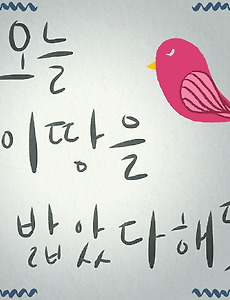 오늘
이 땅을
밟았다해